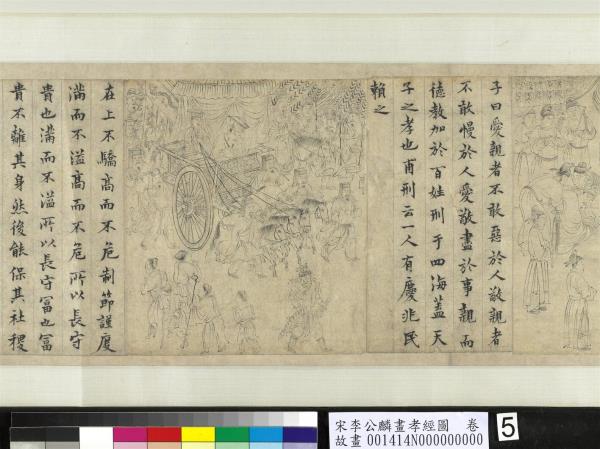 子曰愛親者不敢惡於人敬親者
不敢慢於人愛敬盡於事親而
德教加於百姓刑于四海蓋天
子之孝也甫刑云一人有慶兆民
賴之
在上不驕高而不危制節謹度
滿而不溢高而不危所以長守
貴也滿而不溢所以長守冨也冨
貴不離其身然後能保其社稷
宋李公麟畫孝經圖 卷
故畫 001414N000000000
5